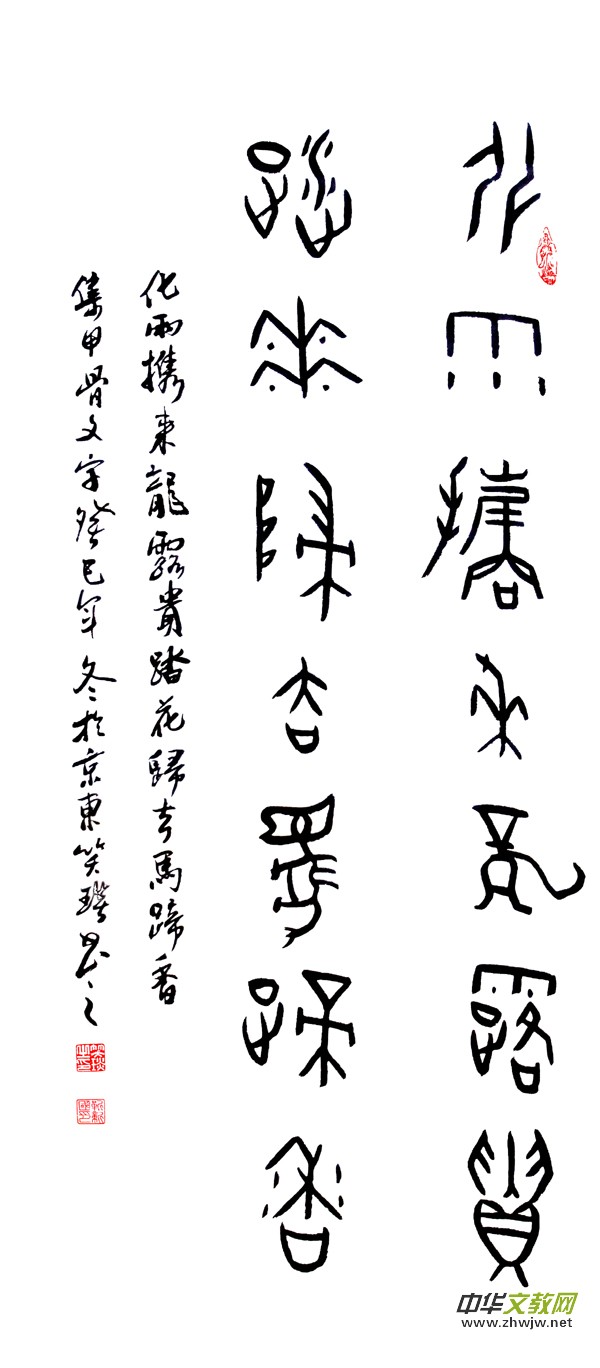 化雨攜來龍露貴
踏花歸去馬蹄香
化雨攜來龍露貴踏花歸去馬蹄香
集甲骨文字癸巳年冬於京東笑
中华文教网
www.zhwjw.net